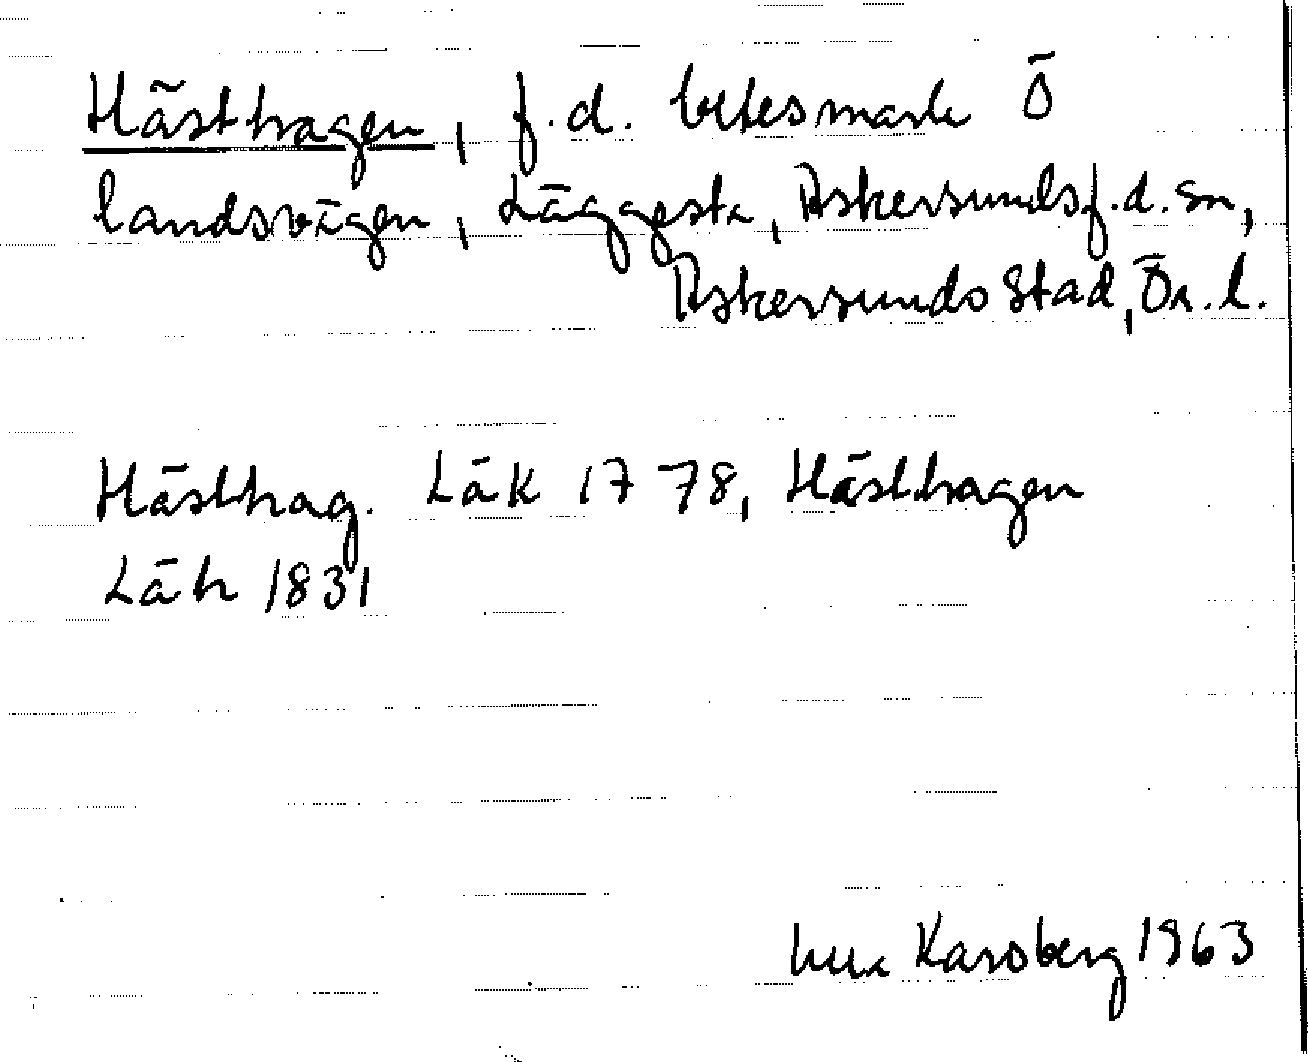 Hästhagen, f.d. betesmark Ö
landsvägen, Läggesta, Askersunds f.d. sn,
Askersunds stad, Ör. l.
Hästhag. Läk 1778, Hästhagen
Läh 1831
Karsberg 1963